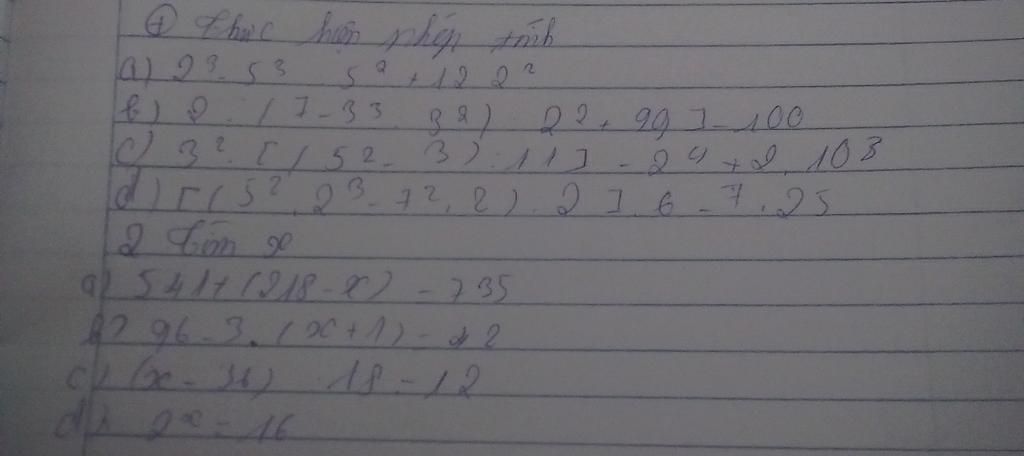 ① Thực hiện phép tính
a) 2³ - 5³ 5² + 12 2²
b) 2 : ( 7 - 3³ . 3²) : 2² + 99 ] - 100
c) 3² . [ ( 5² - 3 ) : 11 ] - 2⁴ + 2 . 103
d) [ ( 5² . 2³ - 7² . 2 ) . 2 ] . 6 - 7 . 25
2 tìm x
a) 541 + (218 - x) = 735
b) 96 - 3 . (x + 1) = 42
c) (x - 36) 18 = 12
d) 2ˣ = 16